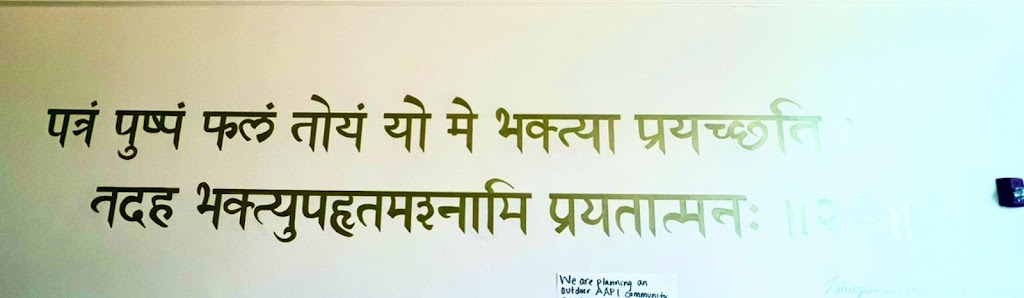 पत्रं पुष्पं फलं तोयं यो मे भक्त्या प्रयच्छति
तदह भक्त्युपहृतमश्नामि प्रयतात्मनः
We are planning an
outdoor AAPI community